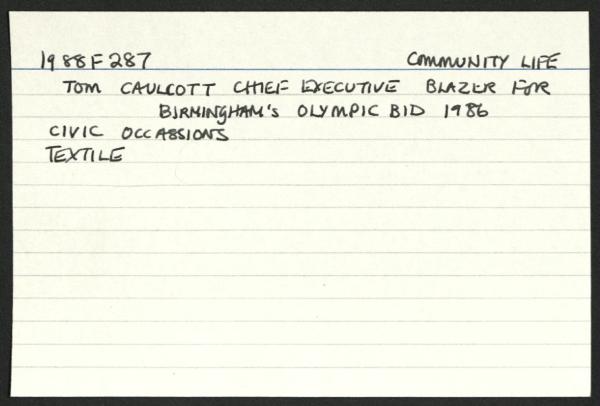 1988F287 COMMUNITY LIFE
TOM CAULCOTT CHIEF EXECUTIVE BLAZER FOR
BIRMINGHAM'S OLYMPIC BID 1986
CIVIC OCCASSIONS
TEXTILE